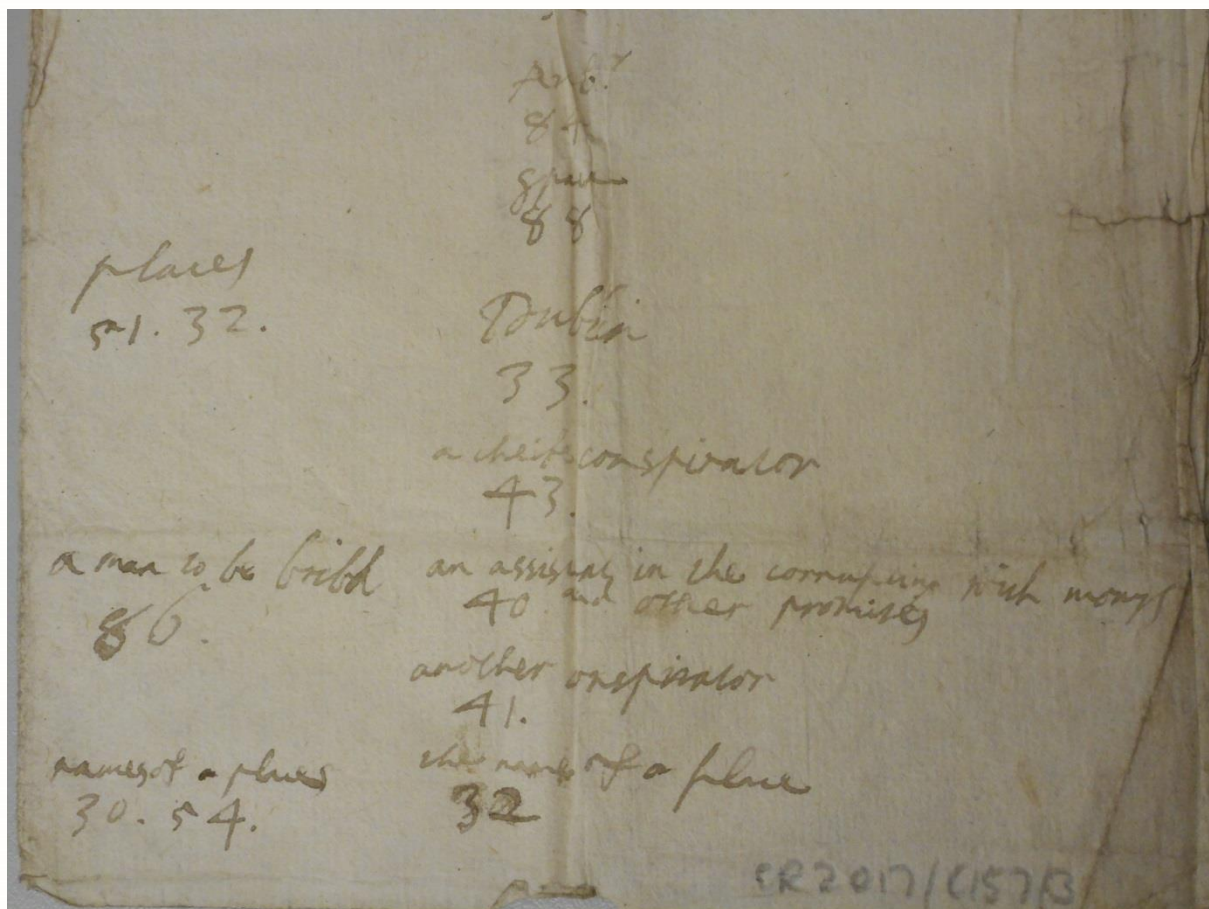 84
88
places
51. 32.
Dublin
33.
a cheife conspirator
43.
a man to be bribd
86.
an assistant in the corrupting with monys
40 and other promises
another onspirator
41.
names of a places
30. 54.
the name of a place
32
CR2017/C157/3